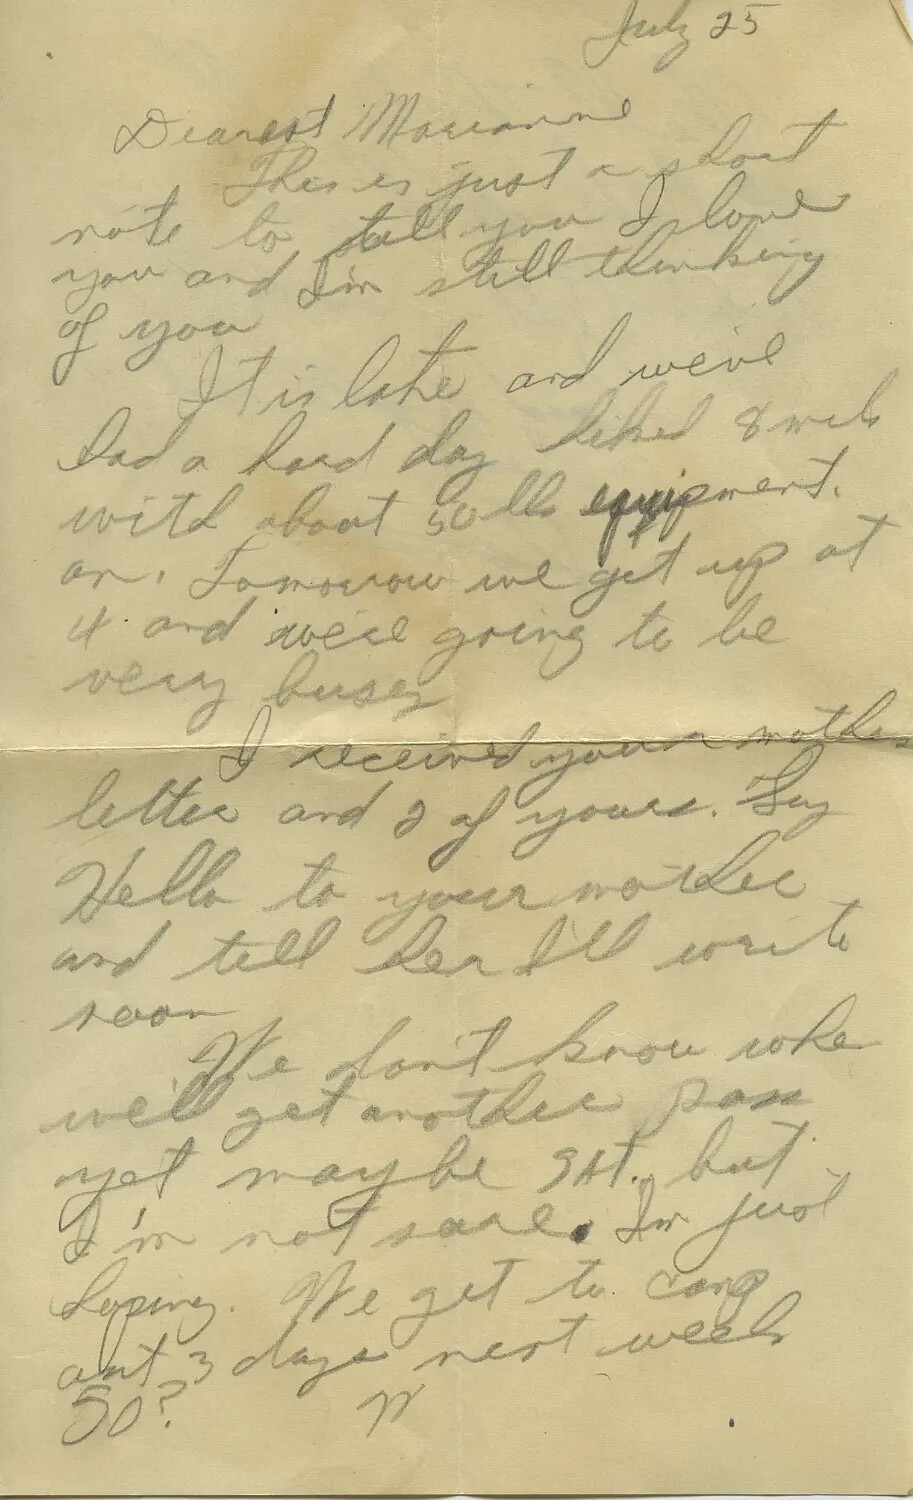 July 25
Dearest Marianne
This is just a short
note to tell you I love
you and I'm still thinking
of you
It is late and we've
had a hard day hiked 8 mile
with about 50 lb equipment.
on. Tomorrow we get up at
4 and we're going to be
very busy
I received your mother
letter and 2 of yours. Say
Hello to your mother
and tell her I'll write
soon
We don't know when
we'll get another pass
yet maybe SAT. but
I'm not sure. Im just
hoping. We get to camp
out 3 days next week
SO?